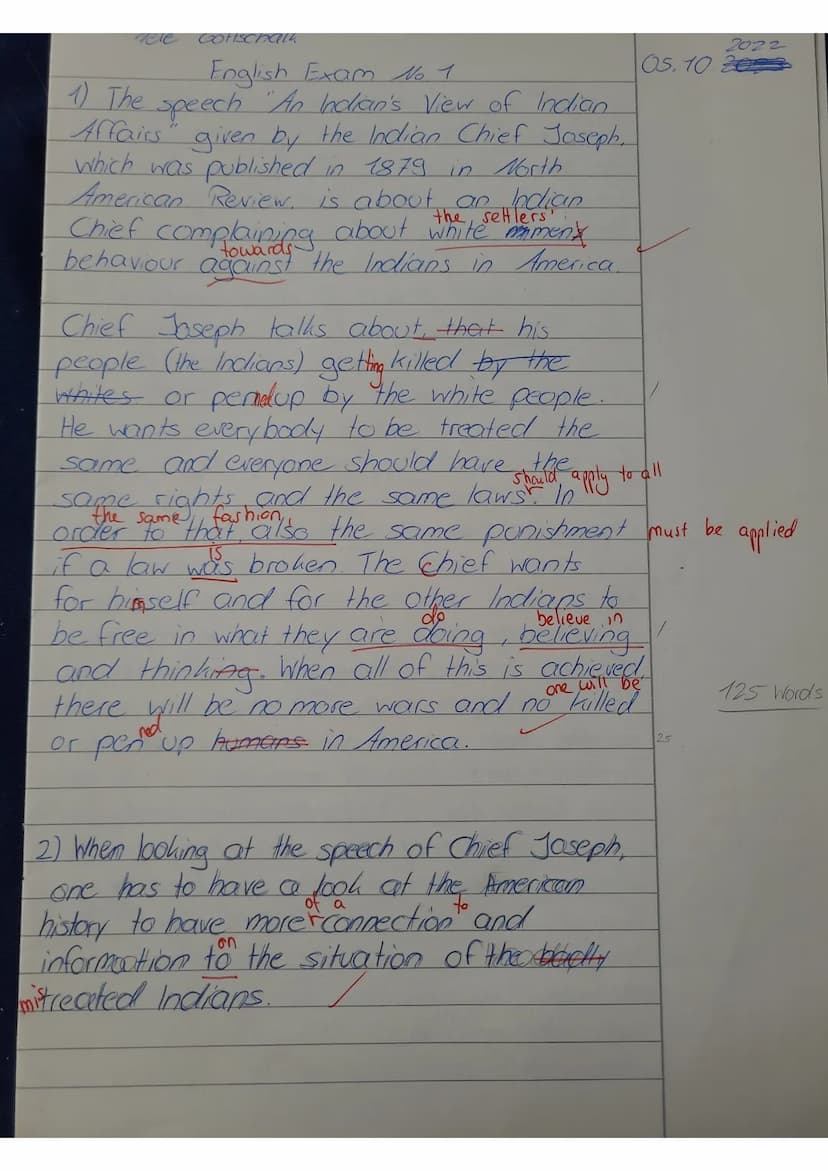 Gottschalk
English Exam No 1
05.10 2022
1) The speech "An Indian's View of Indian
Affairs" given by the Indian Chief Joseph,
which was published in 1879 in North
American Review, is about an Indian
the settlers'
Chief complaining about white men
towards
behaviour against the Indians in America.
Chief Joseph talks about, that his
people (the Indians) getting killed by the
whites or penned up by the white people.
He wants everybody to be treated the
same and everyone should have the
should apply to all
same rights and the same laws. In
the same fashion,
order to that, also the same punishment must be applied
is
if a law was broken. The Chief wants
for himself and for the other Indians to
do believe in
be free in what they are doing, believing
and thinking. When all of this is achieved,
one will be
there will be no more wars and no killed
125 Words
or penned up humans in America.
25
2) When looking at the speech of Chief Joseph,
one has to have a look at the American
of a to
history to have more connection and
on
information to the situation of the badly
mistreated Indians.